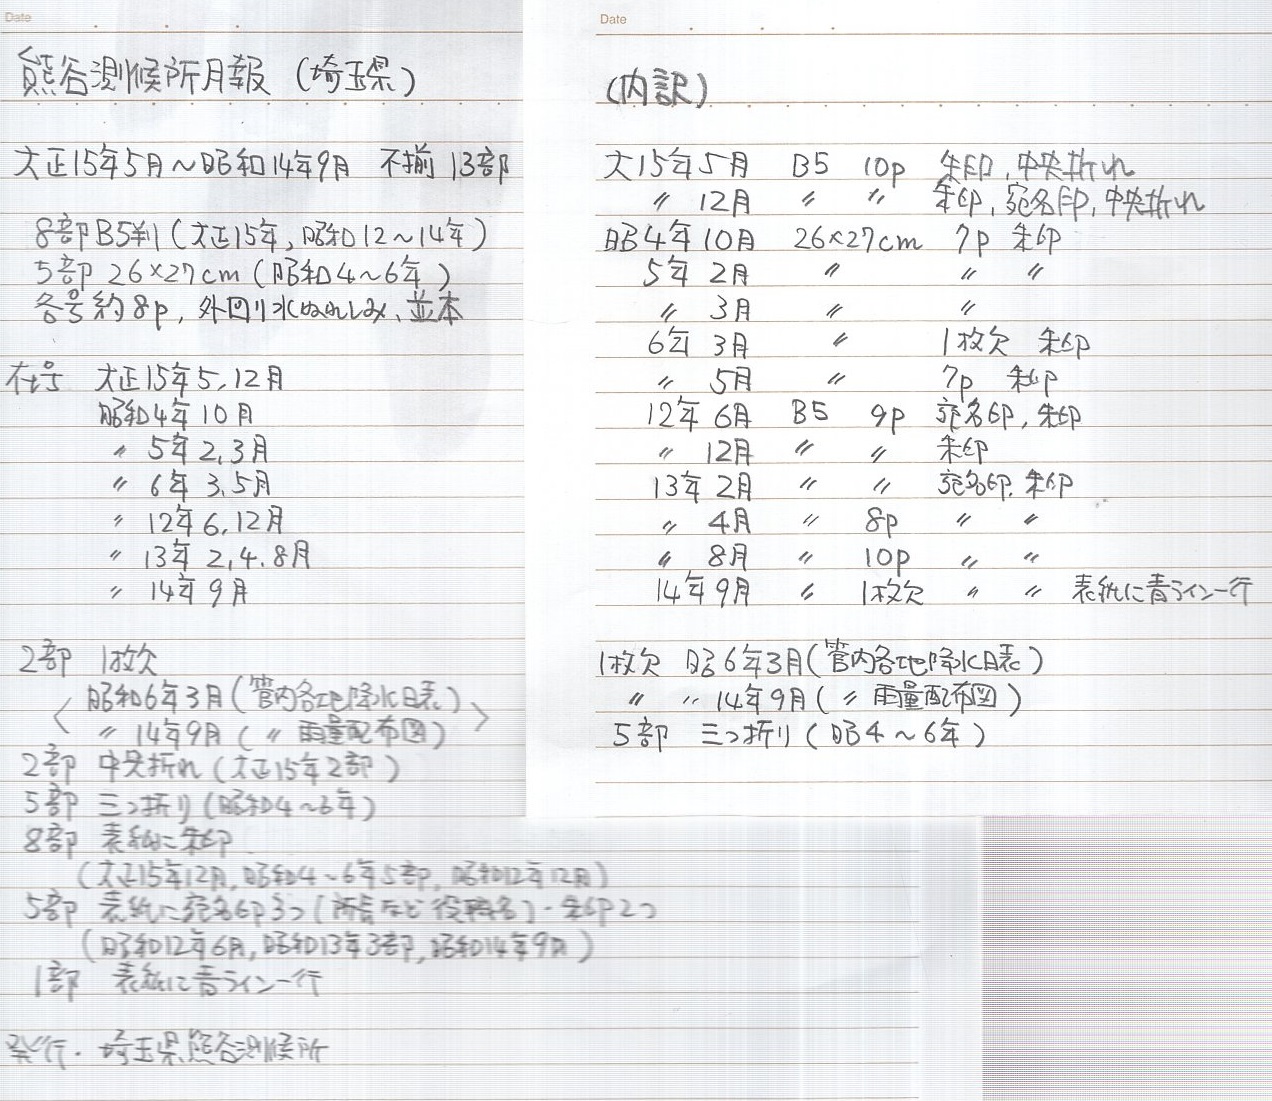 Date
熊谷測候所月報（埼玉県）
大正15年5月～昭和14年9月 不揃 13部
8部B5判（大正15年，昭和12～14年）
5部 26×27cm（昭和4～6年）
各号約8p，外回り水ぬれしみ、並本
在号 大正15年5，12月
昭和4年10月
〃 5年2，3月
〃 6年3，5月
〃 12年6，12月
〃 13年2，4，8月
〃 14年9月
2部 1枚欠
〈昭和6年3月（管内各地降水日表）
〃 14年9月（〃 雨量配布図）〉
2部 中央折れ（大正15年2部）
5部 三つ折り（昭和4～6年）
8部 表紙に朱印
（大正15年12月，昭和4～6年5部，昭和12年12月）
5部 表紙に宛名印3つ（所長など役職名）・朱印2つ
（昭和12年6月，昭和13年3部，昭和14年9月）
1部 表紙に青ライン一行
発行．埼玉県熊谷測候所
Date
（内訳）
大15年5月 B5 10p 朱印，中央折れ
〃 12月 〃 〃 朱印，宛名印，中央折れ
昭4年10月 26×27cm 7p 朱印
5年2月 〃 〃 〃
〃 3月 〃 〃
6年3月 〃 1枚欠 朱印
〃 5月 〃 7p 朱印
12年6月 B5 9p 宛名印，朱印
〃 12月 〃 〃 朱印
13年2月 〃 〃 宛名印，朱印
〃 4月 〃 8p 〃 〃
〃 8月 〃 10p 〃 〃
14年9月 〃 1枚欠 〃 〃 表紙に青ライン一行
1枚欠 昭6年3月（管内各地降水日表）
〃 〃 14年9月（〃 雨量配布図）
5部 三つ折り（昭4～6年）